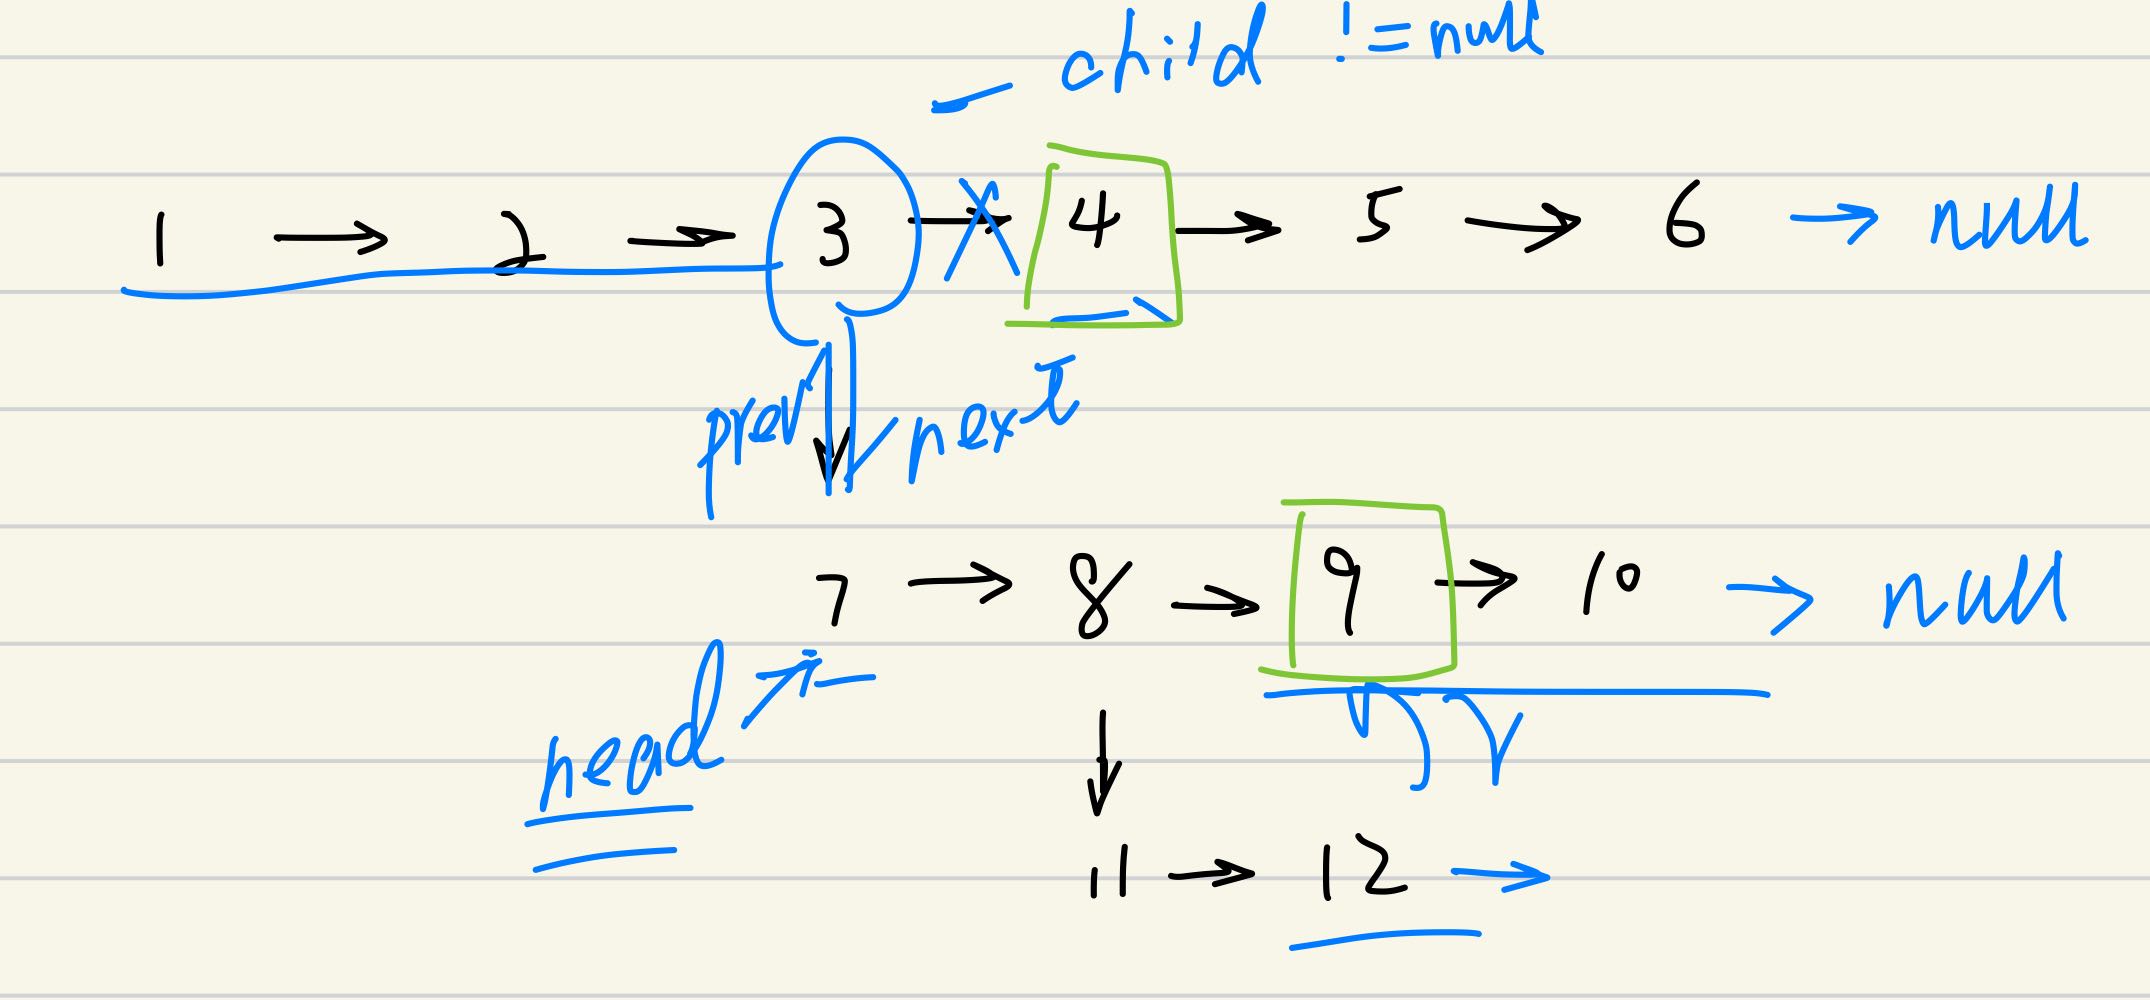 child != null
1 → 2 → 3 → 4 → 5 → 6 → null
prev next
7 → 8 → 9 → 10 → null
head
11 → 12 →